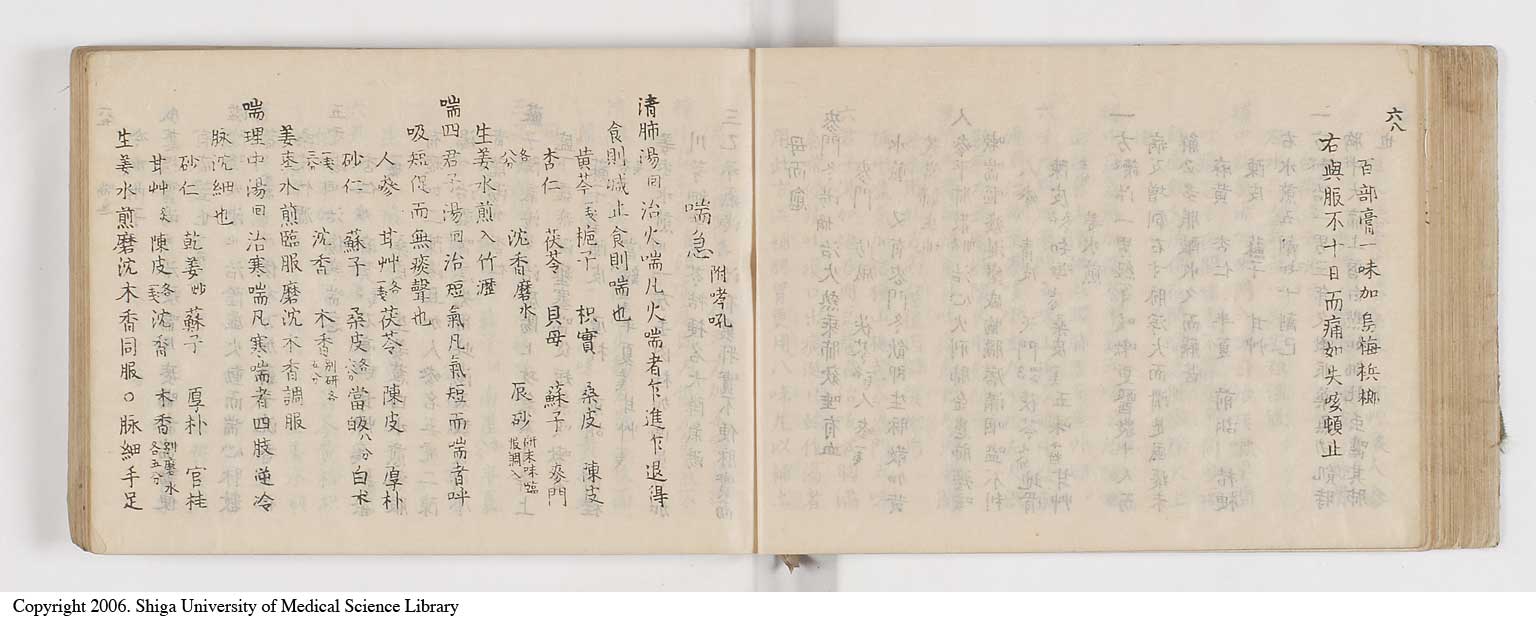 六八
百部膏一味加烏梅梹榔
右與服不十日而痛如失咳頓止
喘急 附哮吼
清肺湯回治火喘凡火喘者乍進乍退得
食則减止食則喘也
黄芩一戔梔子 枳實 桑皮 陳皮
杏仁 茯苓 貝母 蘇子 麥門
各八分 沈香磨水 辰砂研末臨服調入
生姜水煎入竹瀝
喘四君子湯回治短氣凡氣短而喘者呼
吸短促而無痰聲也
人參 甘艸各一戔茯苓 陳皮 厚朴
砂仁 蘇子 桑皮各六分當皈八分白朮
一戔二分 沈香 木香別研各五分
姜棗水煎臨服磨沈木香調服
喘理中湯回治寒喘凡寒喘者四肢逆冷
脉沉細也
砂仁 乾姜炒 蘇子 厚朴 官桂
甘艸炙陳皮各一戔沈香 木香別磨水各五分
生姜水煎磨沈木香同服○脉細手足
Copyright 2006. Shiga University of Medical Science Library